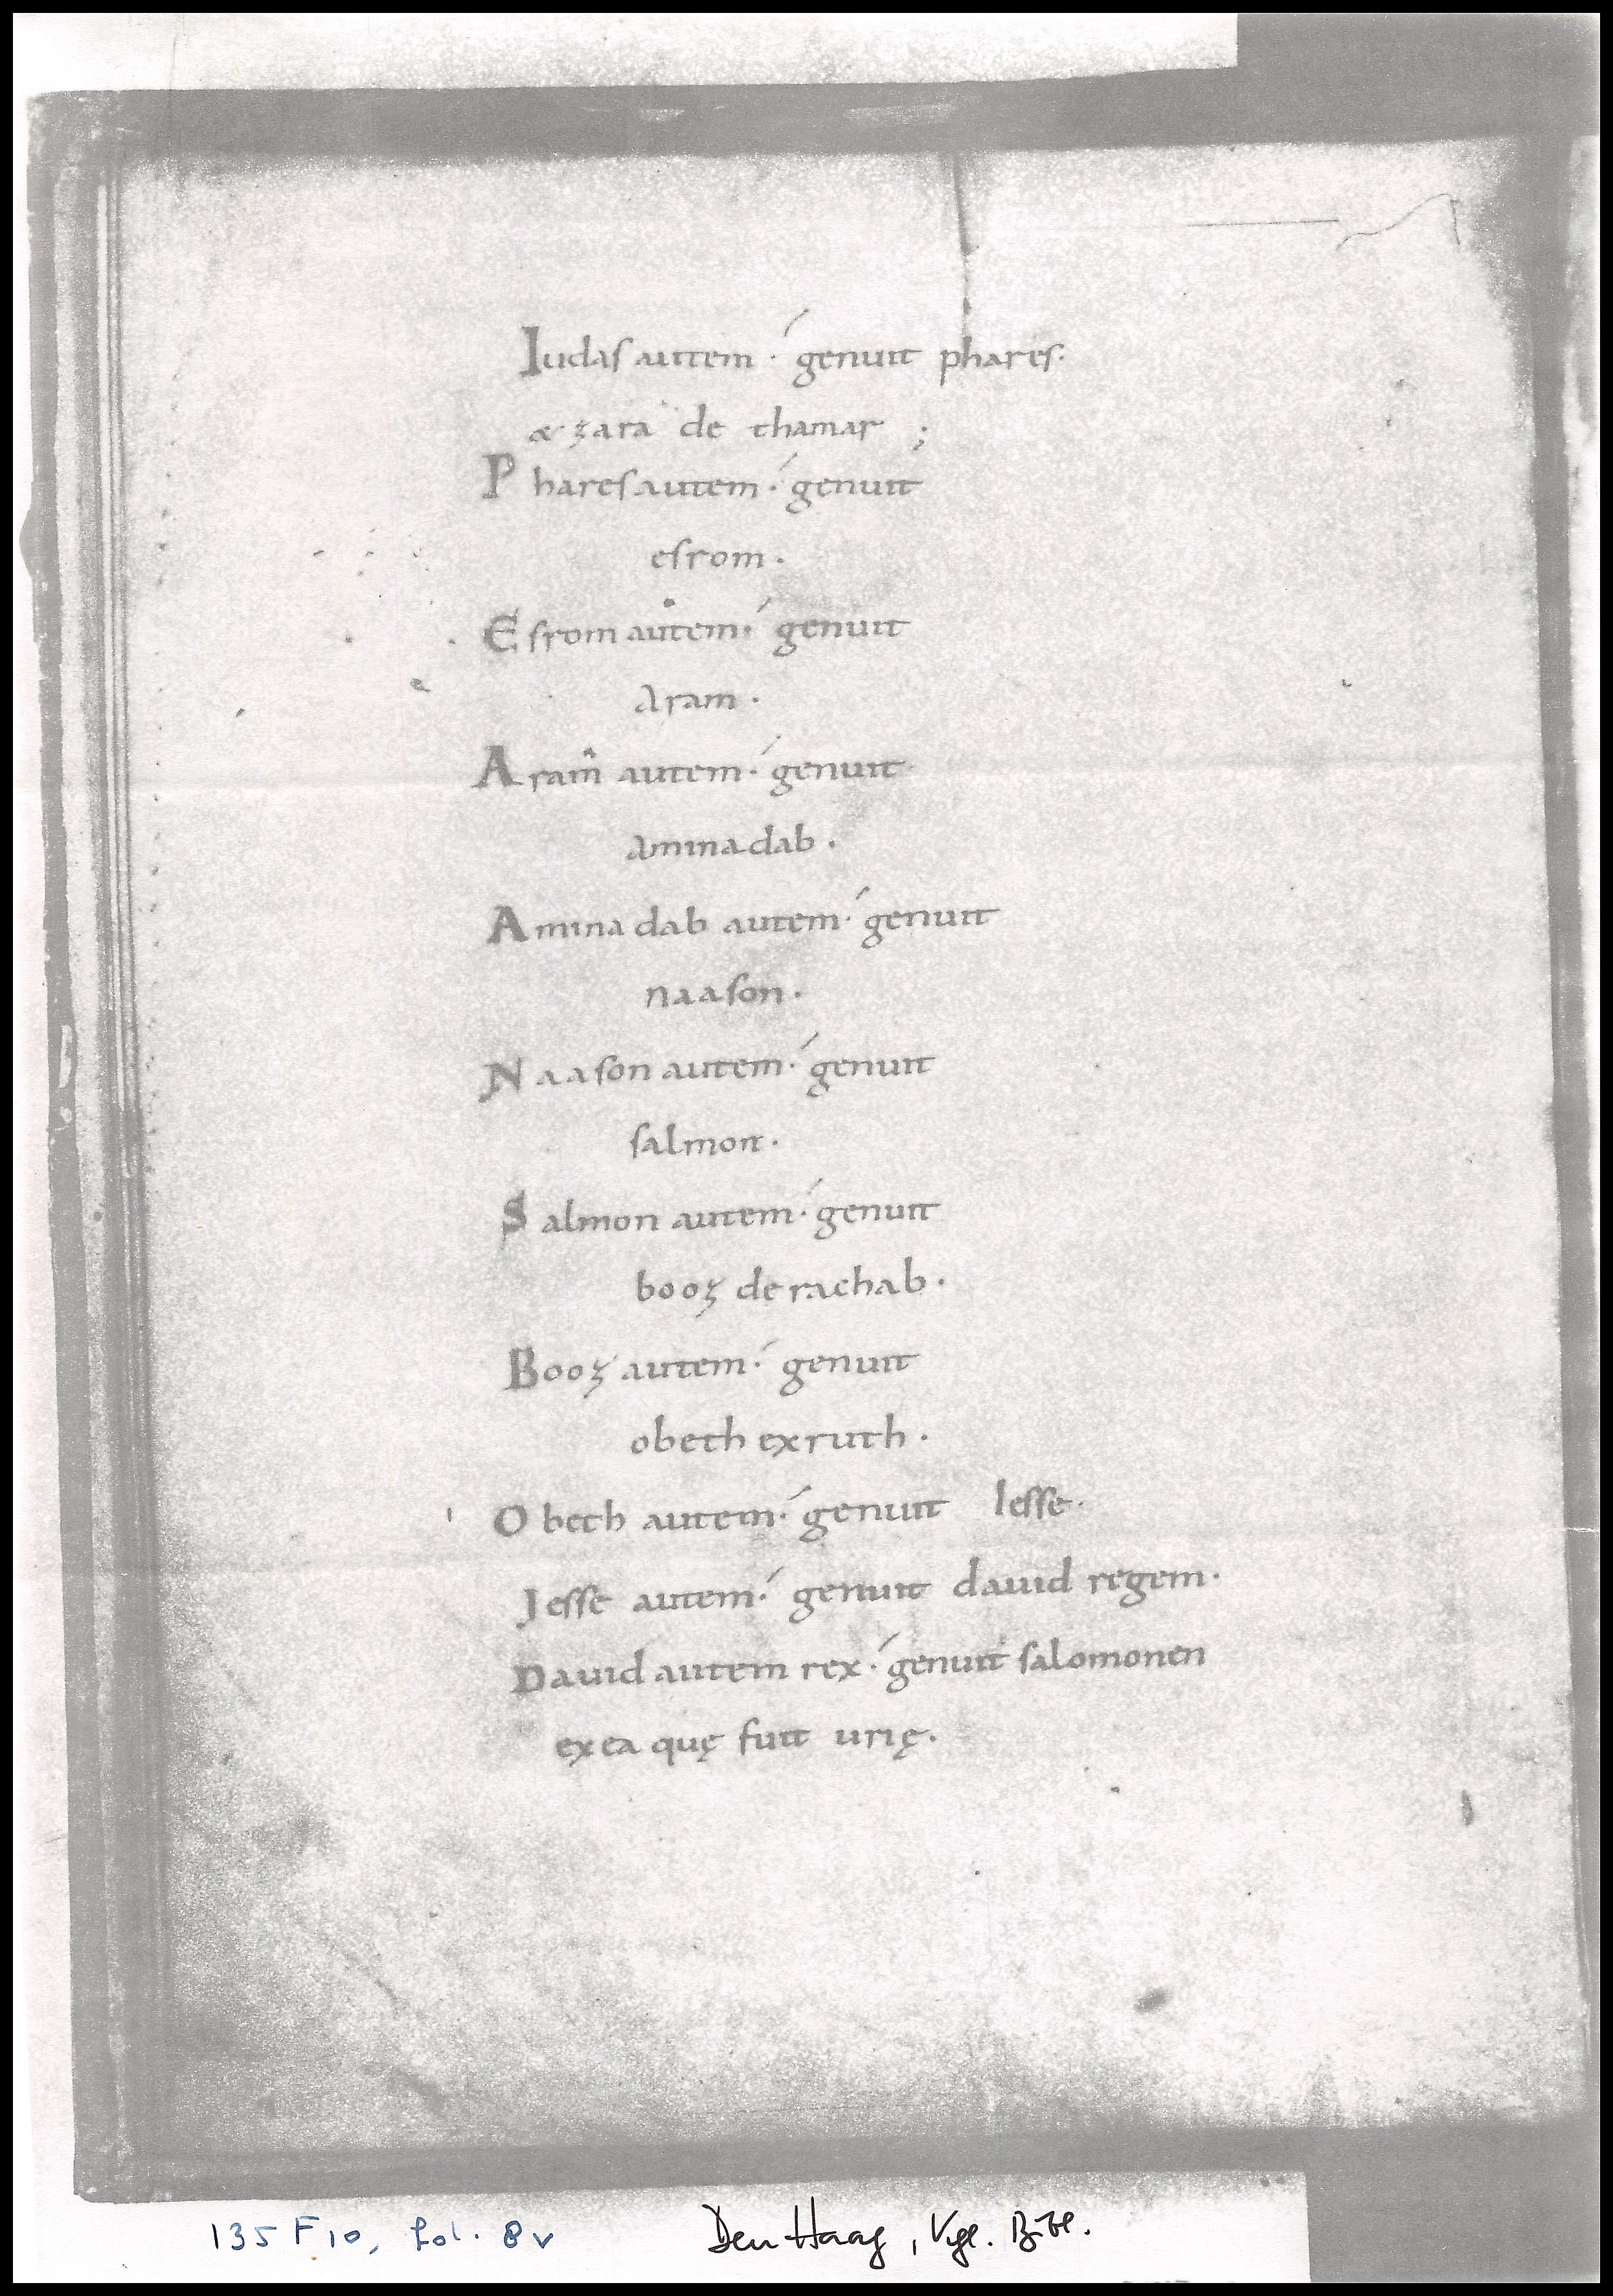 Iudas autem · genuit phares·
& zara de thamar ;
Phares autem · genuit
esrom ·
Esrom autem · genuit
Aram ·
Aram autem · genuit
Aminadab ·
Aminadab autem · genuit
naason ·
Naason autem · genuit
salmon ·
Salmon autem · genuit
booz de rachab ·
Booz autem · genuit
obeth ex ruth ·
Obeth autem · genuit Iesse ·
Jesse autem · genuit dauid regem ·
Dauid autem rex · genuit salomonen
ex ea quę fuit urię ·
135 F 10, fol. 8v Den Haag, Kgl. Bibl.